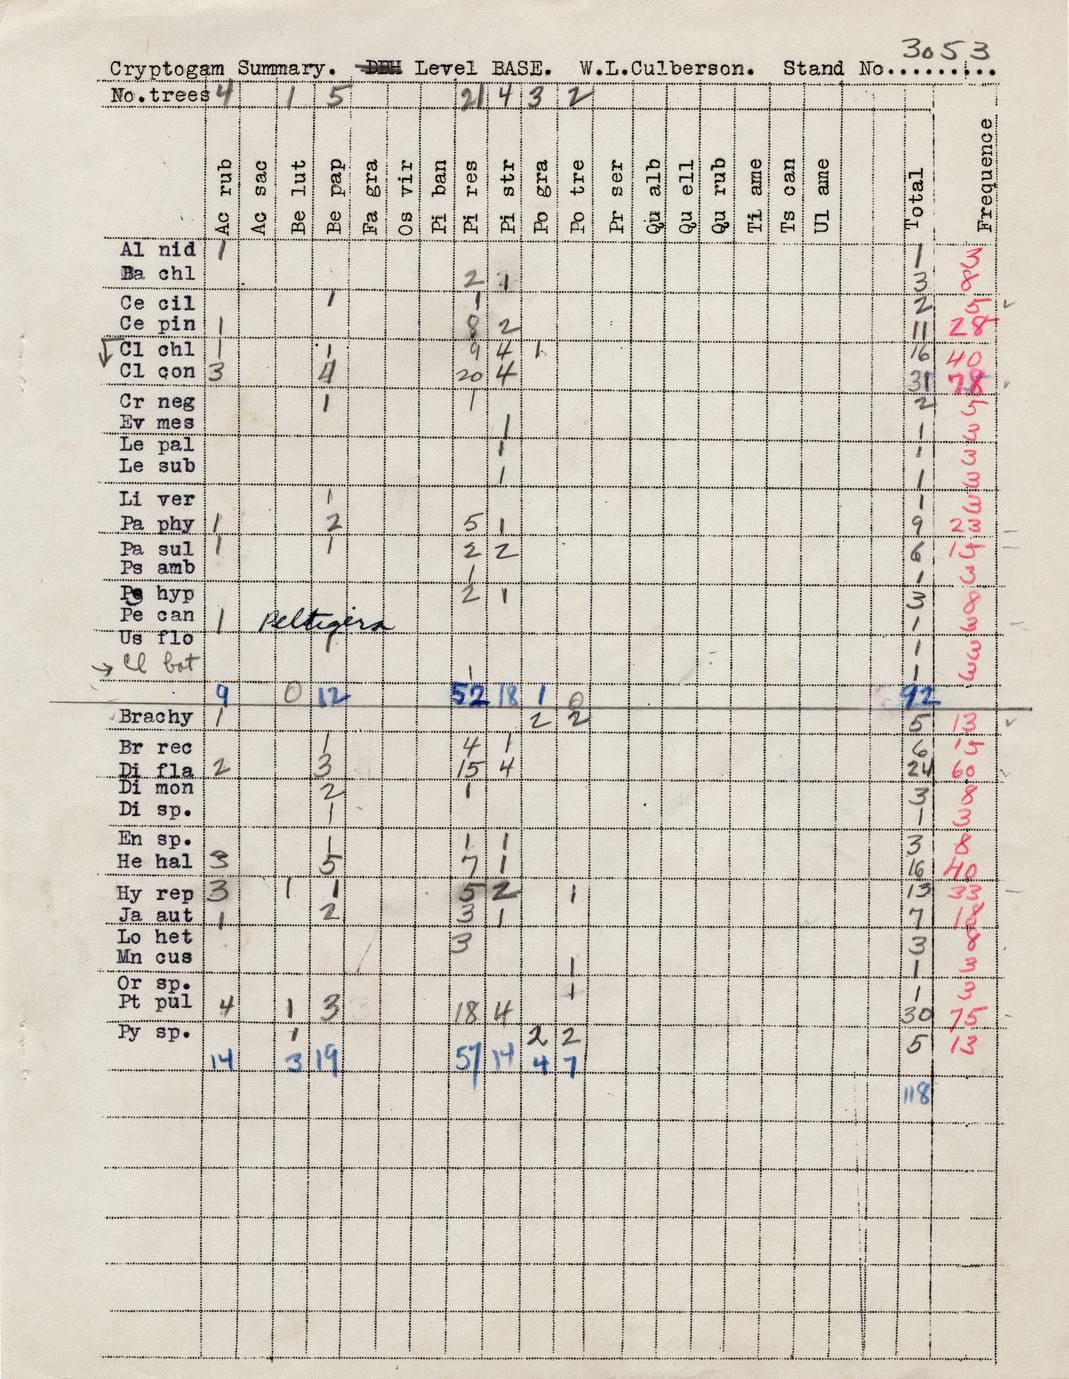 3053
Cryptogam Summary. DBH Level BASE. W.L.Culberson. Stand No........
No.trees 4 1 5 21 4 3 2
Ac rub Ac sac Be lut Be pap Fa gra Os vir Pi ban Pi res Pi str Po gra Po tre Pr ser Qu alb Qu ell Qu rub Ti ame Ts can Ul ame Total Frequence
Al nid 1 1 3
Ba chl 2 1 3 8
Ce cil 1 1 2 5
Ce pin 1 8 2 11 28
Cl chl 1 1 9 4 1 16 40
Cl con 3 4 20 4 31 78
Cr neg 1 1 2 5
Ev mes 1 1 3
Le pal 1 1 3
Le sub 1 1 3
Li ver 1 1 3
Pa phy 1 2 5 1 9 23
Pa sul 1 1 2 2 6 15
Ps amb 1 1 3
Ps hyp 2 1 3 8
Pe can 1 Peltigera 1 3
Us flo 1 1 3
Cl bot 1 1 3
9 0 12 52 18 1 0 92
Brachy 1 2 2 5 13
Br rec 1 4 1 6 15
Di fla 2 3 15 4 24 60
Di mon 2 1 3 8
Di sp. 1 1 3
En sp. 1 1 1 3 8
He hal 3 5 7 1 16 40
Hy rep 3 1 1 5 2 1 13 33
Ja aut 1 2 3 1 7 18
Lo het 3 3 8
Mn cus 1 1 3
Or sp. 1 1 3
Pt pul 4 1 3 18 4 30 75
Py sp. 1 2 2 5 13
14 3 19 57 14 4 7
118